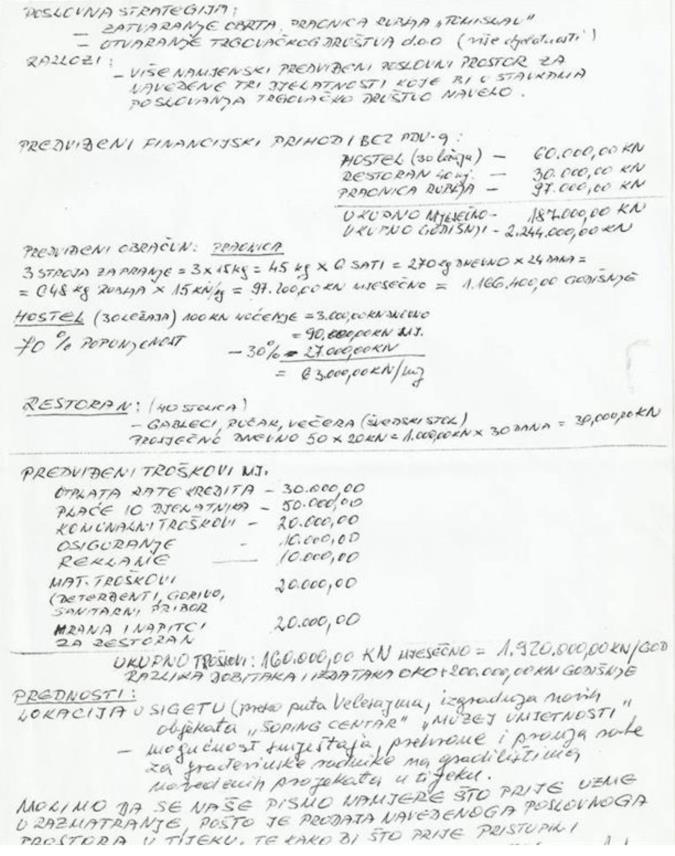 POSLOVNA STRATEGIJA:
- ZATVARANJE OBRTA, PRAONICA RUBLJA "TOMISLAV"
- OTVARANJE TRGOVAČKOG DRUŠTVA d.o.o (više djelatnosti)
RAZLOZI:
- VIŠENAMJENSKI PREDVIĐENI POSLOVNI PROSTOR ZA
NAVEDENE TRI DJELATNOSTI KOJE BI U STAVKAMA
POSLOVANJA TRGOVAČKO DRUŠTVO NAVELO.
PREDVIĐENI FINANCIJSKI PRIHODI BEZ PDV-a:
HOSTEL (30 ležaja) - 60.000,00 KN
RESTORAN 40 mj. - 30.000,00 KN
PRAONICA RUBLJA - 97.000,00 KN
UKUPNO MJESEČNO - 187.000,00 KN
UKUPNO GODIŠNJI - 2.244.000,00 KN
PREDVIĐENI OBRAČUN: PRAONICA
3 STROJA ZA PRANJE = 3 x 15 kg = 45 kg x 6 SATI = 270 kg DNEVNO x 24 DANA =
= 648 kg RUBLJA x 15 KN/kg = 97.200,00 KN MJESEČNO = 1.166.400,00 GODIŠNJE
HOSTEL (30 LEŽAJA) 100 KN NOĆENJE = 3.000,00 KN DNEVNO
= 90.000,00 KN MJ.
70 % POPUNJENOST
- 30% = 27.000,00 KN
= 63.000,00 KN/mj
RESTORAN: (40 STOLICA)
- GABLECI, RUČAK, VEČERA (ŠVEDSKI STOL)
PROSJEČNO DNEVNO 50 x 20 KN = 1.000,00 KN x 30 DANA = 30.000,00 KN
PREDVIĐENI TROŠKOVI MJ.
OTPLATA RATE KREDITA - 30.000,00
PLAĆE 10 DJELATNIKA - 50.000,00
KOMUNALNI TROŠKOVI - 20.000,00
OSIGURANJE - 10.000,00
REKLAME - 10.000,00
MAT. TROŠKOVI 20.000,00
(DETERĐENTI, GORIVO,
SANITARNI PRIBOR
HRANA I NAPITCI 20.000,00
ZA RESTORAN
UKUPNO TROŠKOVI: 160.000,00 KN MJESEČNO = 1.920.000,00 KN/GOD
RAZLIKA DOBITAKA I IZDATAKA OKO +200.000,00 KN GODIŠNJE
PREDNOSTI:
LOKACIJA U SIGETU (preko puta Velesajma, izgradnja novih
objekata "ŠOPING CENTAR" "MUZEJ UMJETNOSTI"
- mogućnost smještaja, prehrane i pranja robe
za građevinske radnike na gradilištima
navedenih projekata u tijeku.
MOLIMO DA SE NAŠE PISMO NAMJERE ŠTO PRIJE UZME
U RAZMATRANJE, POŠTO JE PRODAJA NAVEDENOGA POSLOVNOGA
PROSTORA U TIJEKU, TE KAKO BI ŠTO PRIJE PRISTUPILI